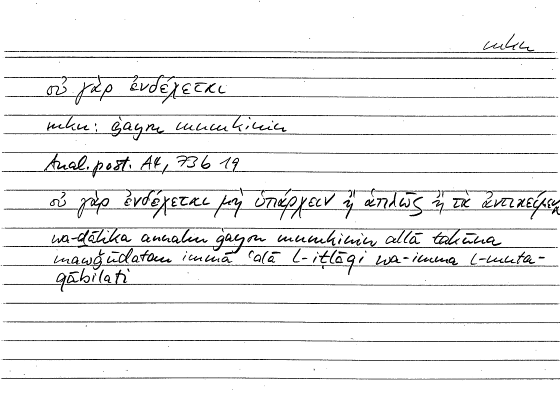 mkn
οὐ γὰρ ἐνδέχεται
mkn: ġayru mumkinin
Anal. post. A4, 73b 19
οὐ γὰρ ἐνδέχεται μὴ ὑπάρχειν ἢ ἁπλῶς ἢ τὰ ἀντικείμενα
wa-ḏālika annahu ġayru mumkinin allā takūna
mawǧūdatan immā ʿalā l-iṭlāqi wa-imma l-muta-
qābilati